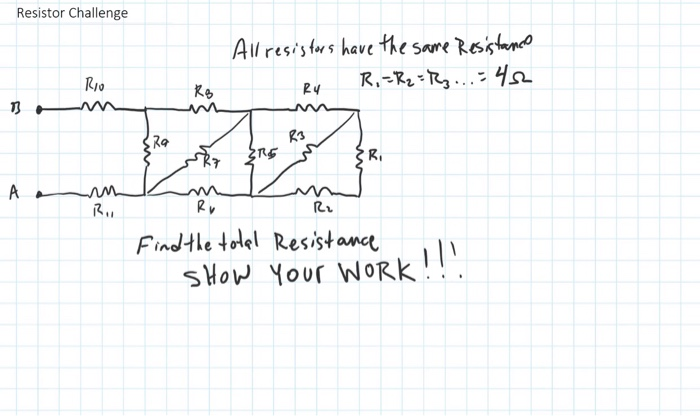 Resistor Challenge
All resistors have the same Resistance
R₁=R₂=R₃...=4Ω
R10
R8
R4
B
R9
R7
R5
R3
R1
A
R11
R6
R2
Find the total Resistance
SHOW YOUR WORK!!!